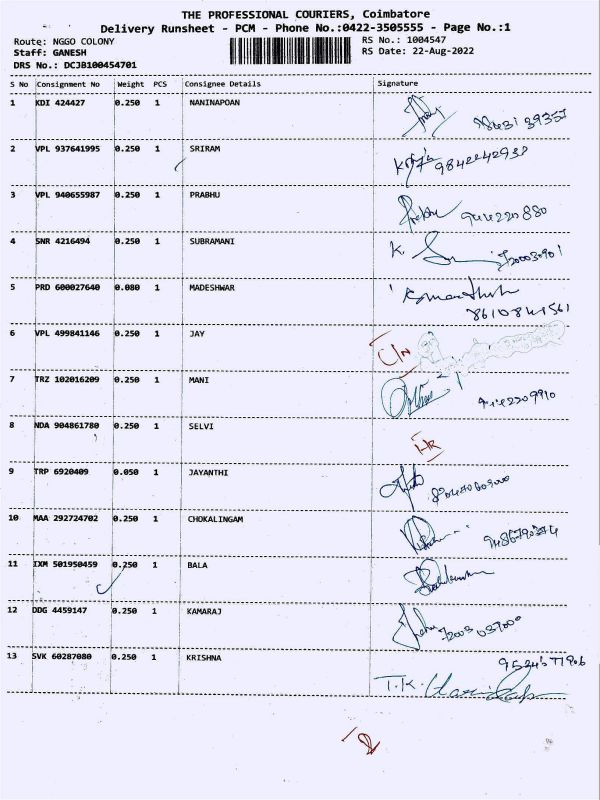 THE PROFESSIONAL COURIERS, Coimbatore
Delivery Runsheet - PCM - Phone No.:0422-3505555 - Page No.:1
Route: NGGO COLONY
RS No.: 1004547
Staff: GANESH
RS Date: 22-Aug-2022
DRS No.: DCJB100454701
S No Consignment No Weight PCS Consignee Details Signature
1 KDI 424427 0.250 1 NANINAPOAN
2 VPL 937641995 0.250 1 SRIRAM
3 VPL 940655987 0.250 1 PRABHU
4 SNR 4216494 0.250 1 SUBRAMANI
5 PRD 600027640 0.080 1 MADESHWAR
8610841561
6 VPL 499841146 0.250 1 JAY
7 TRZ 102016209 0.250 1 MANI
8 NDA 904861780 0.250 1 SELVI
9 TRP 6920409 0.050 1 JAYANTHI
10 MAA 292724702 0.250 1 CHOKALINGAM
11 IXM 501950459 0.250 1 BALA
12 DDG 4459147 0.250 1 KAMARAJ
13 SVK 60287080 0.250 1 KRISHNA
T.K.